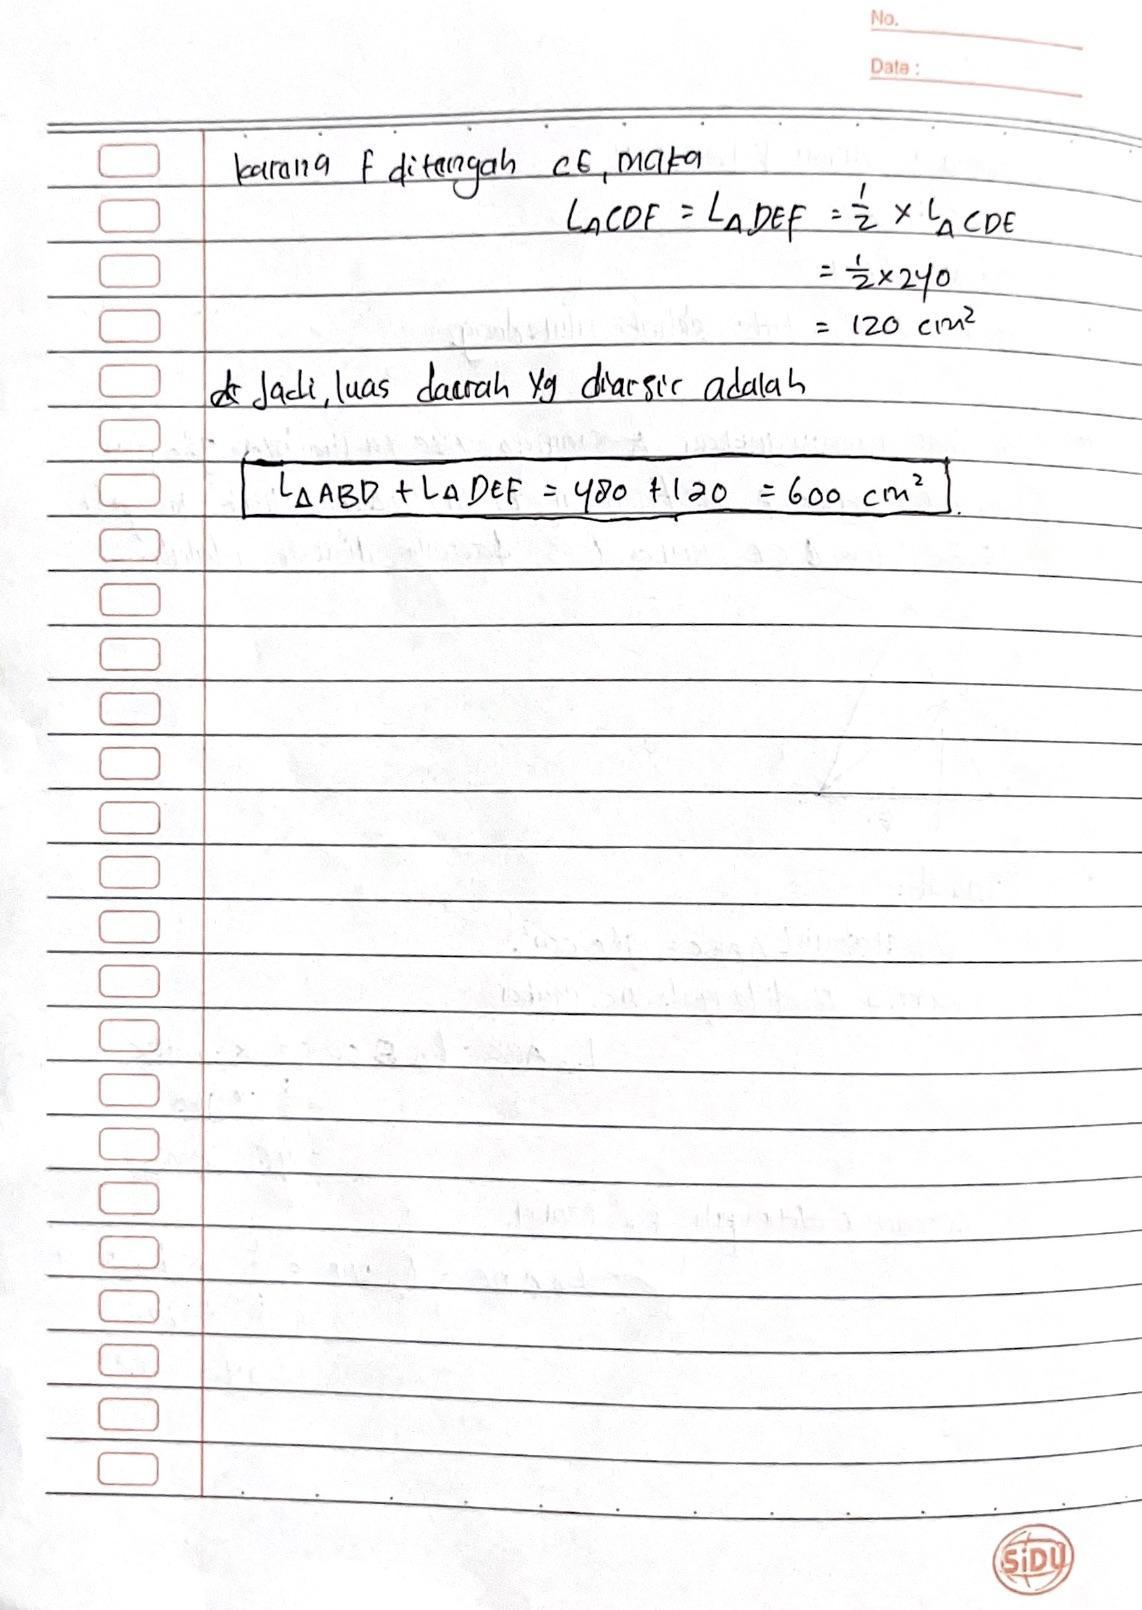 No.
Date :
karana F ditangah CE, maka
L△CDF = L△DEF = 1/2 × L△CDE
= 1/2 × 240
= 120 cm²
Jadi, luas daerah yg diarsir adalah
L△ABD + L△DEF = 480 + 120 = 600 cm².
SiDU